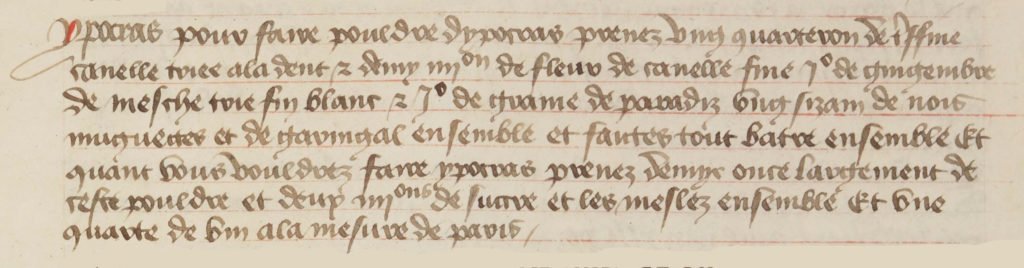 Ypocras pour faire pouldre dypocras prenez ung quarteron de tresfine
canelle triee a la dent & demy iiiion de fleur de canelle fine 1o de gingembre
de mesche trie fin blanc & 1o de graine de paradiz ung sizain de nois
muguectes et de garingal ensemble et faictes tout batre ensemble Et
quant vous vouldrez faire ypocras prenez demye once largement de
ceste pouldre et deux iiiions de sucre et les meslez ensemble Et une
quarte de vin a la mesure de paris /